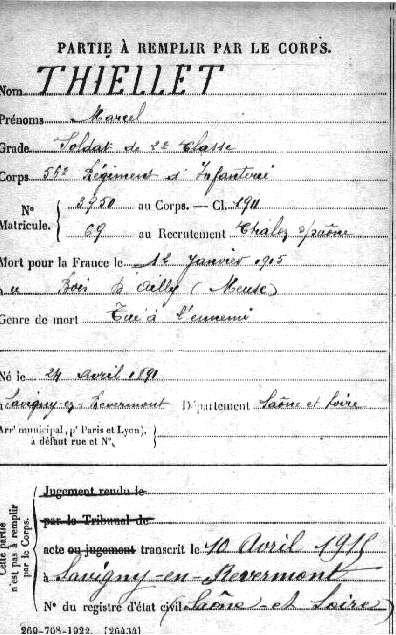 PARTIE À REMPLIR PAR LE CORPS.
Nom THIELLET
Prénoms Marcel
Grade Soldat de 2e Classe
Corps 55e Régiment d'Infanterie
N° 3950 au Corps. — Cl. 1911
Matricule. 69 au Recrutement Chalon s/Saône
Mort pour la France le 12 Janvier 1915
à Bois d'Ailly (Meuse)
Genre de mort Tué à l'ennemi
Né le 24 avril 1891
à Savigny en Revermont Département Saône et Loire
Arr' municipal, (p' Paris et Lyon),
à défaut rue et N°.
Cette partie
n'est pas à remplir
par le Corps.
Jugement rendu le
par le Tribunal de
acte ou jugement transcrit le 10 Avril 1915
à Savigny-en-Revermont
N° du registre d'état civil (Saône-et-Loire)
269-708-1922. [26434]